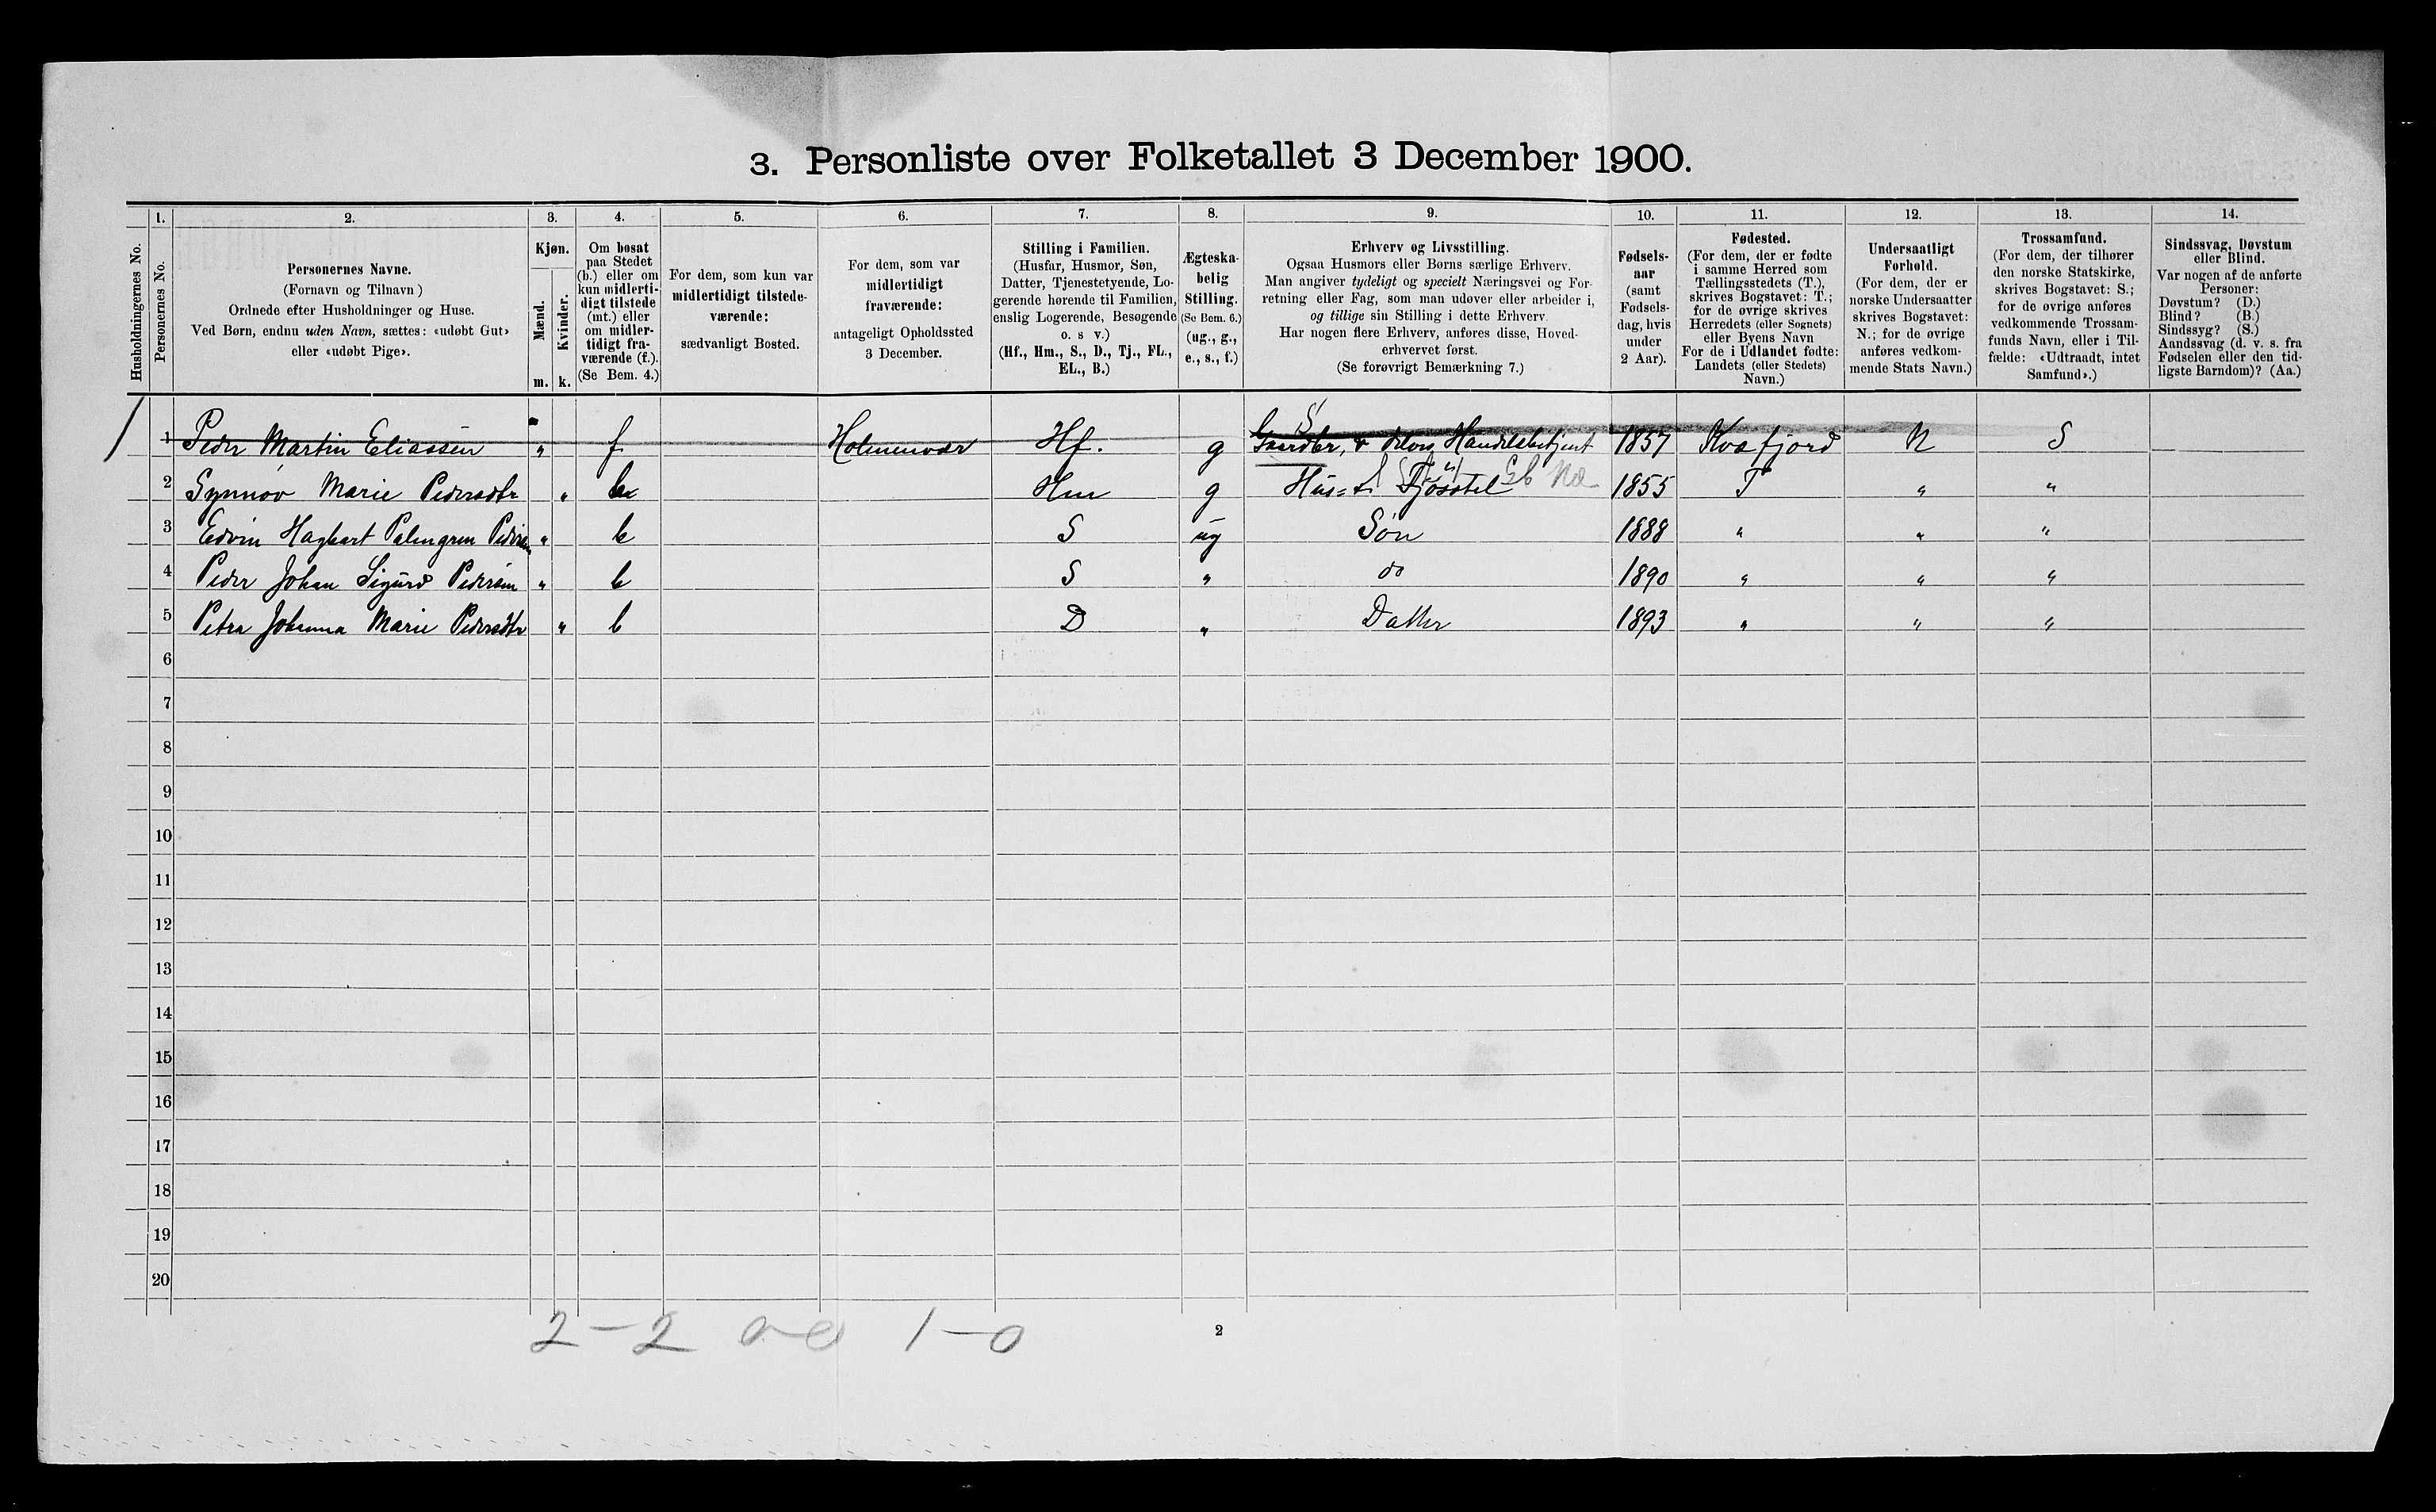 3. Personliste over Folketallet 3 December 1900.
Husholdningernes No.
1.
Personernes No.
2.
Personernes Navne.
(Fornavn og Tilnavn)
Ordnede efter Husholdninger og Huse.
Ved Børn, endnu uden Navn, sættes: «udøbt Gut»
eller «udøbt Pige».
3.
Kjøn.
Mænd.
Kvinder.
m. k.
4.
Om bosat
paa Stedet
(b.) eller om
kun midlerti-
digt tilstede
(mt.) eller
om midler-
tidigt fra-
værende (f.).
(Se Bem. 4.)
5.
For dem, som kun var
midlertidigt tilstede-
værende:
sædvanligt Bosted.
6.
For dem, som var
midlertidigt
fraværende:
antageligt Opholdssted
3 December.
7.
Stilling i Familien.
(Husfar, Husmor, Søn,
Datter, Tjenestetyende, Lo-
gerende hørende til Familien,
enslig Logerende, Besøgende
o. s v.)
(Hf., Hm., S., D., Tj., FL.,
EL., B.)
8.
Ægteska-
belig
Stilling.
(Se Bem. 6.)
(ug., g.,
e., s., f.)
9.
Erhverv og Livsstilling.
Ogsaa Husmors eller Børns særlige Erhverv.
Man angiver tydeligt og specielt Næringsvei og For-
retning eller Fag, som man udøver eller arbeider i,
og tillige sin Stilling i dette Erhverv.
Har nogen flere Erhverv, anføres disse, Hoved-
erhvervet først.
(Se forøvrigt Bemærkning 7.)
10.
Fødsels-
aar
(samt
Fødsels-
dag, hvis
under
2 Aar).
11.
Fødested.
(For dem, der er fødte
i samme Herred som
Tællingsstedets (T.),
skrives Bogstavet: T.;
for de øvrige skrives
Herredets (eller Sognets)
eller Byens Navn
For de i Udlandet fødte:
Landets (eller Stedets)
Navn.)
12.
Undersaatligt
Forhold.
(For dem, der er
norske Undersaatter
skrives Bogstavet:
N.; for de øvrige
anføres vedkom-
mende Stats Navn.)
13.
Trossamfund.
(For dem, der tilhører
den norske Statskirke,
skrives Bogstavet: S.;
for de øvrige anføres
vedkommende Trossam-
funds Navn, eller i Til-
fælde: «Udtraadt, intet
Samfund».)
14.
Sindssvag, Døvstum
eller Blind.
Var nogen af de anførte
Personer:
Døvstum? (D.)
Blind? (B.)
Sindssyg? (S.)
Aandssvag (d. v. s. fra
Fødselen eller den tid-
ligste Barndom)? (Aa.)
1 Peder Martin Eliassen " f Holmenvær Hf. g Gaardbr, Handelsbetjent 1857 Kvæfjord N S
2 Synnøv Marie Pedersdtr " b Hm g Hus= Fjøsstel 1855 T " "
3 Edvin Hagbart Palmgren Pedersen " b S ug Søn 1888 " " "
4 Peder Johan Sigurd Pedersen " b S " do 1890 " " "
5 Petra Johanna Marie Pedersdtr " b D " Datter 1893 " " "
6
7
8
9
10
11
12
13
14
15
16
17
18
19
20
2-2 1-0
2